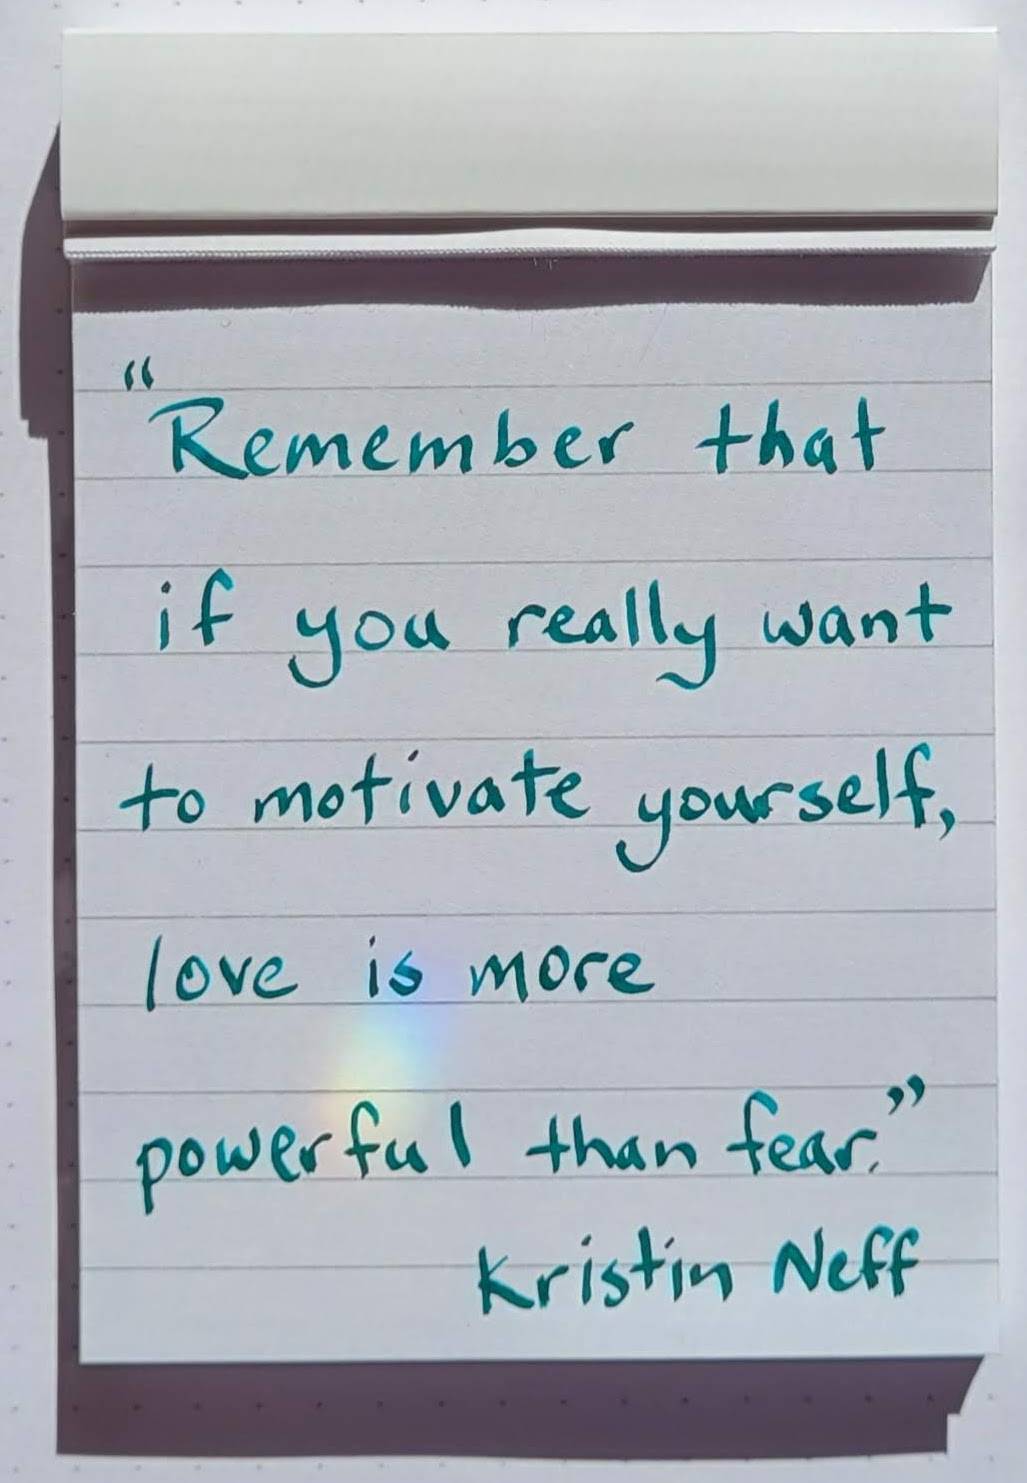 “Remember that
if you really want
to motivate yourself,
love is more
powerful than fear.”
Kristin Neff